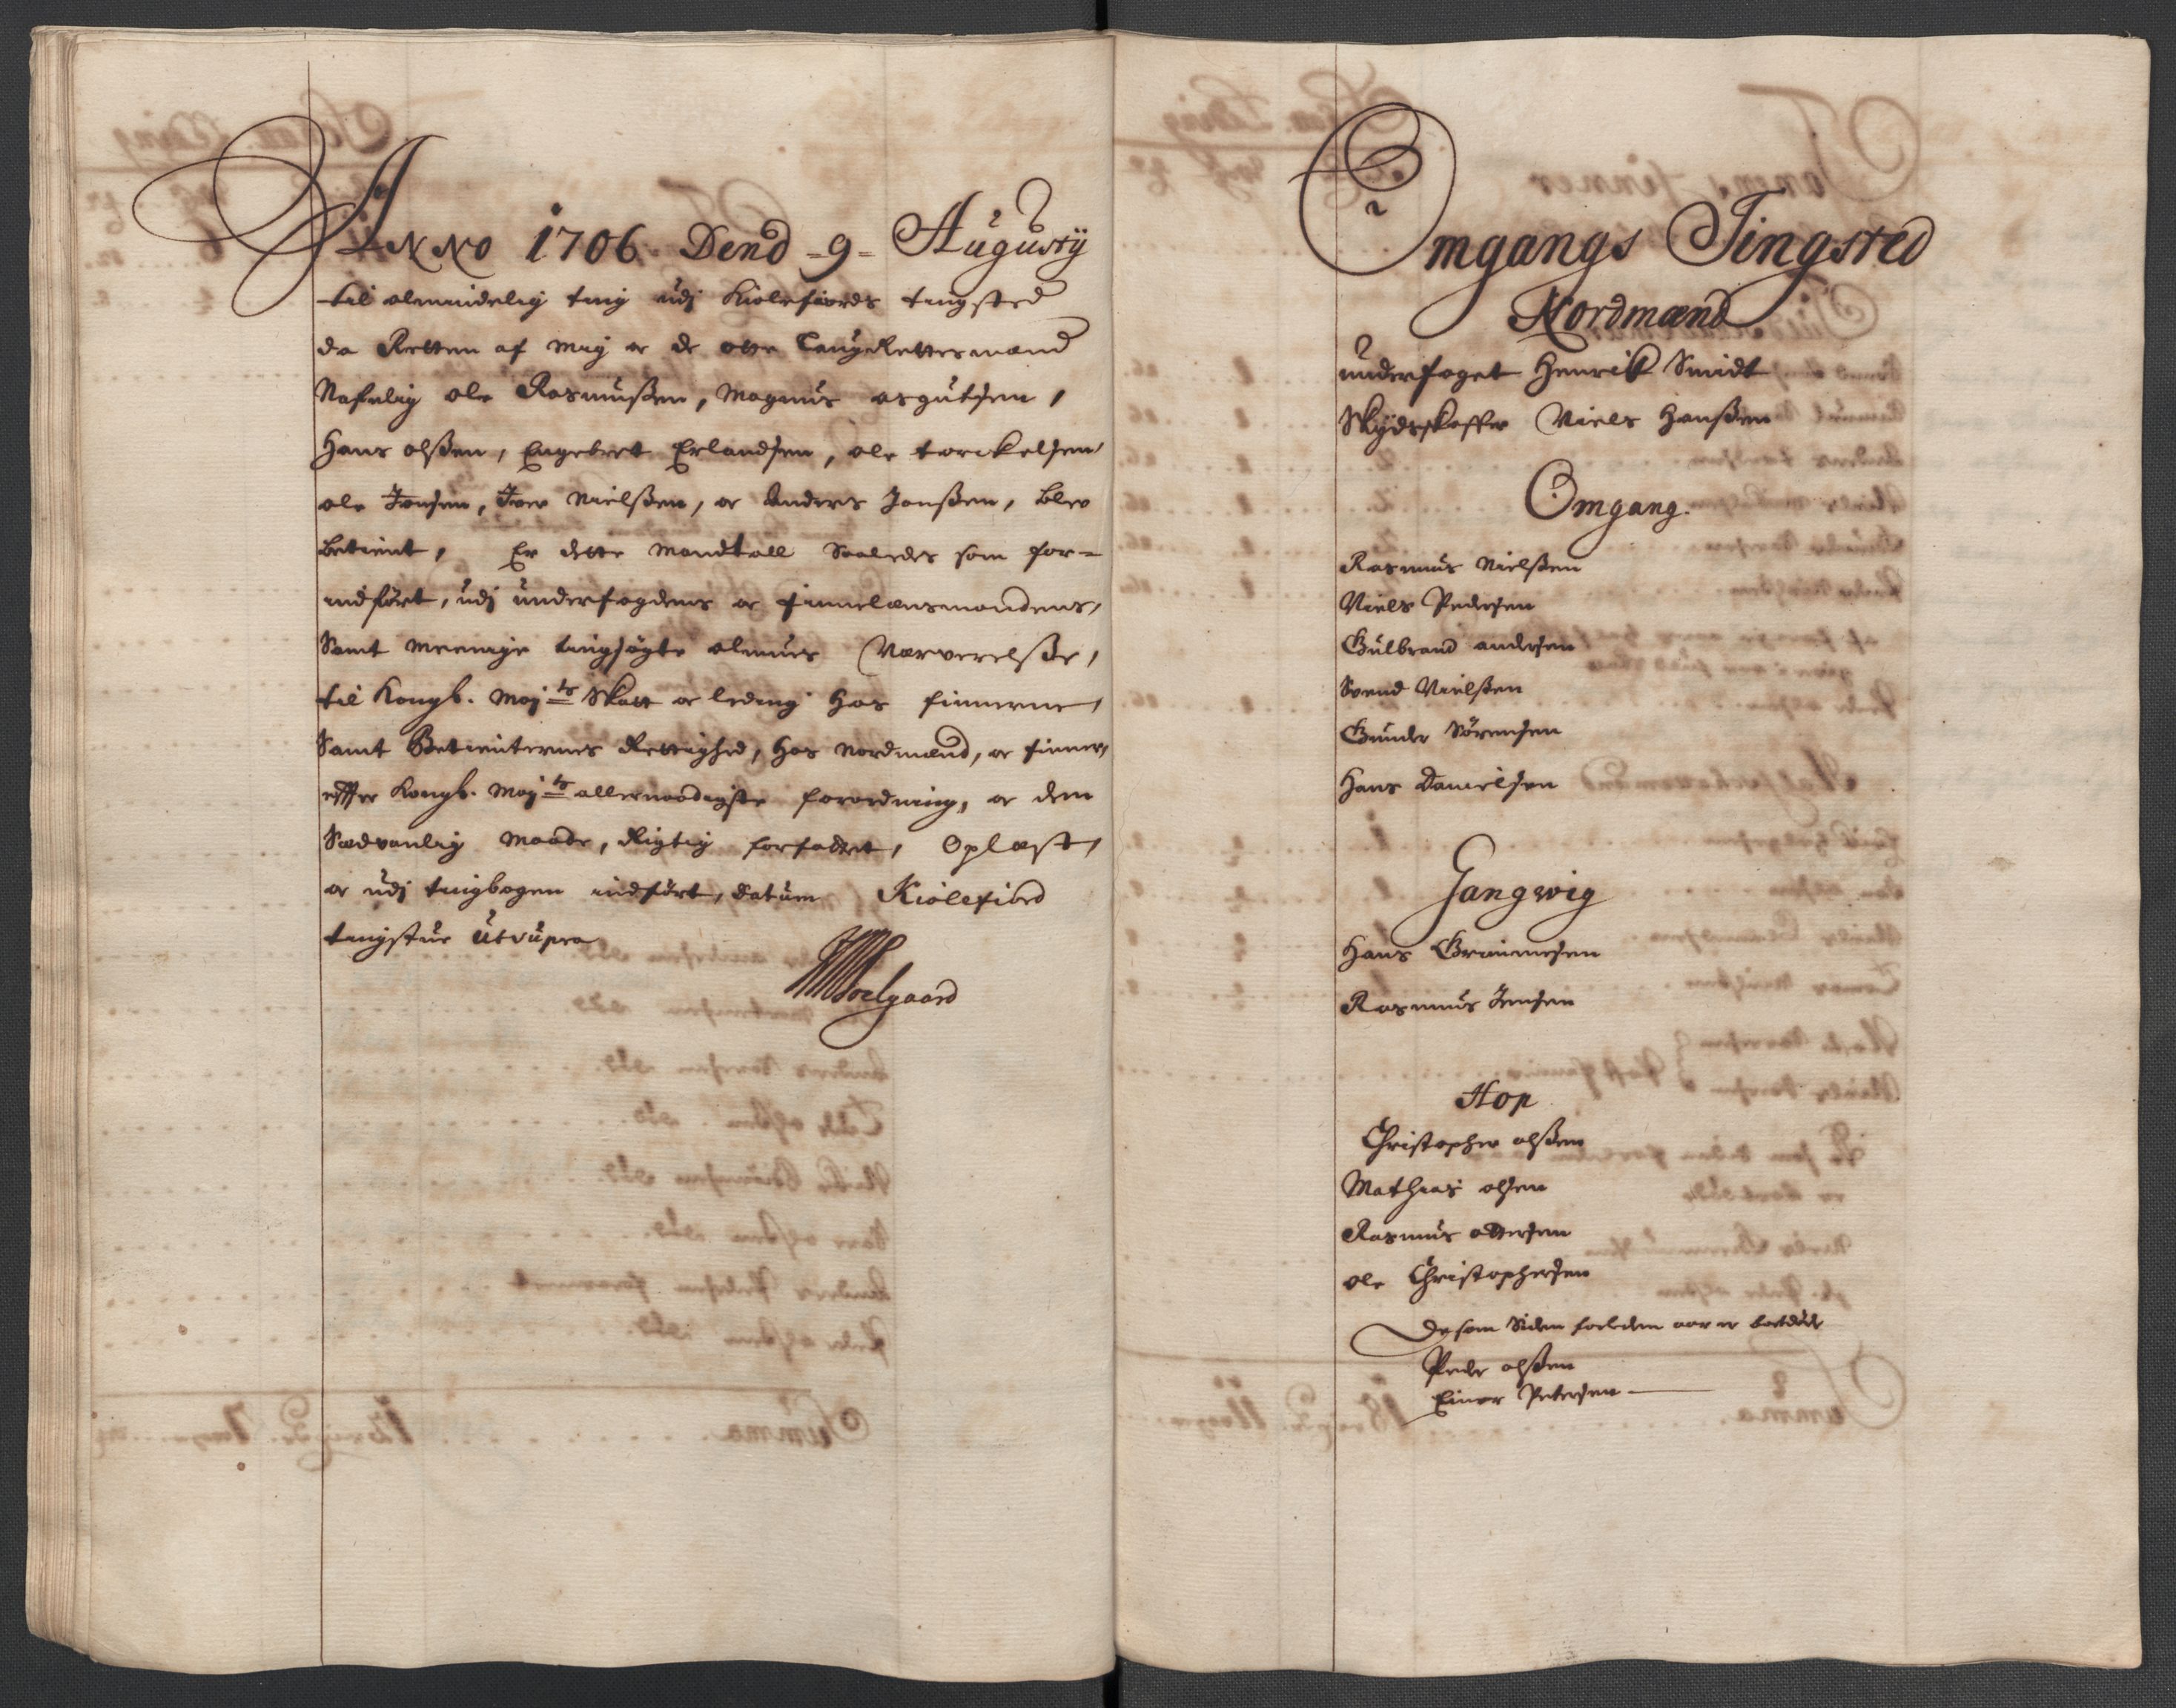 ANNO 1706 Dend -9- Augustij
til almindelig ting udj Kiolefiords tingsted
da Retten af mig oc de otte LaugRettesmænd
Nafnlig ole Rasmußen, Magnus asgutsen,
Hans olßen, Engebret Erlandsen, ole torckelsen,
ole Jensen, Iver Nielßen, oc Anders Jonßen, blev
betient, Er dette Mandtall Saaledes som for-
indført, udj underfogdens oc finnelensmandens,
Samt meenige tingsøgte almues Nærverelße,
til Kongl. Maj:ts Skatt oc leding hos finnerne,
Samt Betienternes Rettighed, hos Nordmænd, oc finner,
effter Kongl. Maj:ts allernaadigste forordning, oc den
Sædvanlig maade, Rigtig forfattet, Oplæst,
oc udj tingbogen indført, datum Kiölefiord
tingstue Ut supra
Soelgaard
Omgangs Tingsted
Nordmænd
underfoget Henrik Smidt
Skydsskaffer Niels Hanßen
Omgang.
Rasmus Nielßen
Niels Pedersen
Gulbrand andersen
Svend Nielßen
Gunder Sörensen
Hans Danielsen
Gangwig
Hans Grimmesen
Rasmus Jensen
Hop
Christopher olßen
Mathias olsen
Rasmus ottersen
ole Christophersen
De som Siden forleden aar er bortdöde
Peder olßen
Einer Petersen